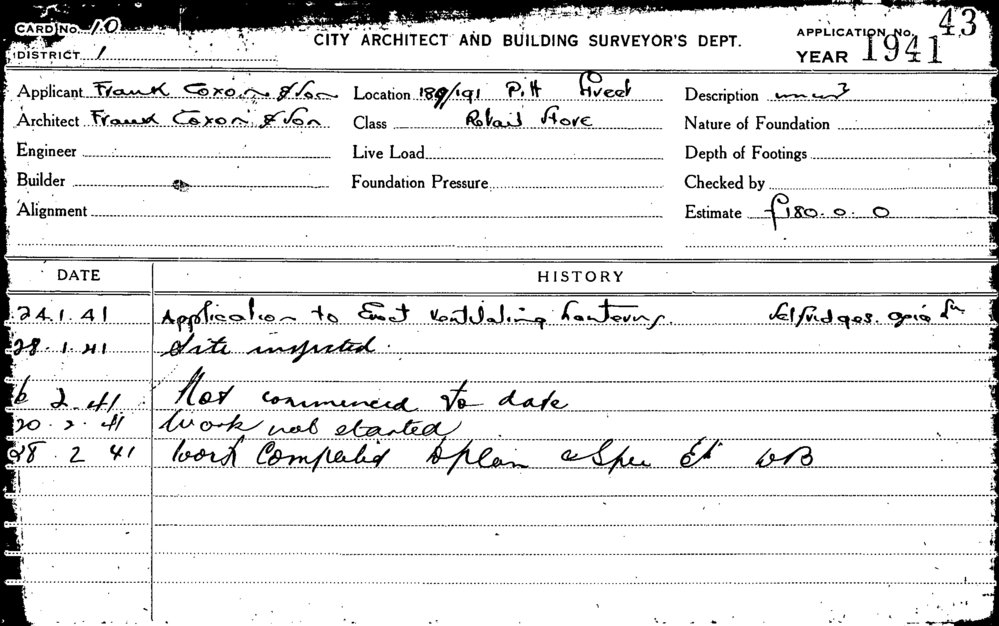 CARD No. 10
DISTRICT 1
CITY ARCHITECT AND BUILDING SURVEYOR'S DEPT.
APPLICATION No. 43
YEAR 1941
Applicant Frank Coxon & Son Location 189/191 Pitt Street Description
Architect Frank Coxon & Son Class Retail Store Nature of Foundation
Engineer Live Load Depth of Footings
Builder Foundation Pressure Checked by
Alignment Estimate £180.0.0
DATE HISTORY
24.1.41 Application to Erect Ventilating Lanterns. Selfridges.
28.1.41 Site inspected.
6 2.41 Not commenced to date
20.2.41 Work not started
28 2 41 Work Completed plan & Spec